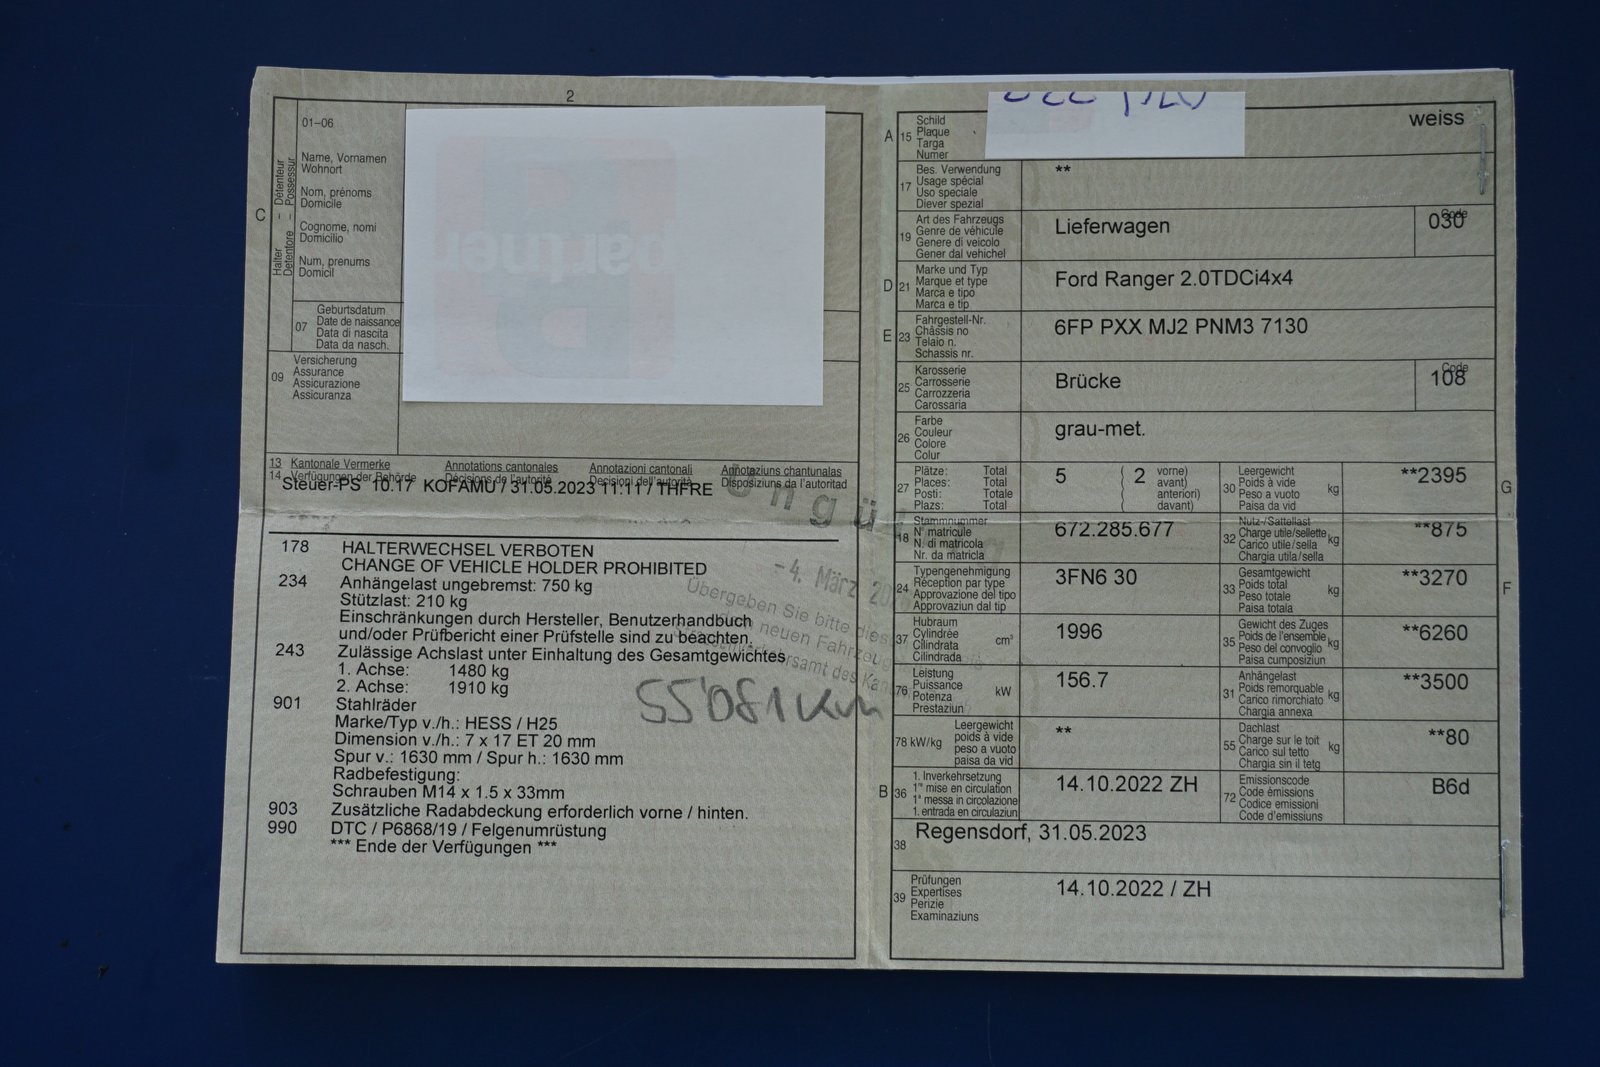 2
01–06
Name, Vornamen
Wohnort
Nom, prénoms
Domicile
Cognome, nomi
Domicilio
Num, prenums
Domicil
C
Halter – Détenteur
Detentore – Possessur
07
Geburtsdatum
Date de naissance
Data di nascita
Data da nasch.
09
Versicherung
Assurance
Assicurazione
Assicuranza
partner
13 Kantonale Vermerke Annotations cantonales Annotazioni cantonali Annotaziuns chantunalas
14 Verfügungen der Behörde Décisions de l'autorité Decisioni dell'autorità Disposiziuns da l'autoritad
Steuer-PS 10.17 KOFAMU / 31.05.2023 11:11 / THFRE
178 HALTERWECHSEL VERBOTEN
CHANGE OF VEHICLE HOLDER PROHIBITED
234 Anhängelast ungebremst: 750 kg
Stützlast: 210 kg
Einschränkungen durch Hersteller, Benutzerhandbuch
und/oder Prüfbericht einer Prüfstelle sind zu beachten.
243 Zulässige Achslast unter Einhaltung des Gesamtgewichtes
1. Achse: 1480 kg
2. Achse: 1910 kg
901 Stahlräder
Marke/Typ v./h.: HESS / H25
Dimension v./h.: 7 x 17 ET 20 mm
Spur v.: 1630 mm / Spur h.: 1630 mm
Radbefestigung:
Schrauben M14 x 1.5 x 33mm
903 Zusätzliche Radabdeckung erforderlich vorne / hinten.
990 DTC / P6868/19 / Felgenumrüstung
*** Ende der Verfügungen ***
- 4. März
Übergeben Sie bitte dies
neuen Fahrzeu
samt des Kan
55'081 Km
A 15 Schild
Plaque
Targa
Numer
weiss
17 Bes. Verwendung
Usage spécial
Uso speciale
Diever spezial
**
19 Art des Fahrzeugs
Genre de véhicule
Genere di veicolo
Gener dal vehichel
Lieferwagen
Code
030
D 21 Marke und Typ
Marque et type
Marca e tipo
Marca e tip
Ford Ranger 2.0TDCi4x4
E 23 Fahrgestell-Nr.
Châssis no
Telaio n.
Schassis nr.
6FP PXX MJ2 PNM3 7130
25 Karosserie
Carrosserie
Carrozzeria
Carossaria
Brücke
Code
108
26 Farbe
Couleur
Colore
Colur
grau-met.
27 Plätze: Total
Places: Total
Posti: Totale
Plazs: Total
5 ( 2 vorne)
( avant)
( anteriori)
( davant)
30 Leergewicht
Poids à vide
Peso a vuoto
Paisa da vid
kg
**2395
G
18 Stammnummer
N° matricule
N. di matricola
Nr. da matricla
672.285.677
32 Nutz-/Sattellast
Charge utile/sellette
Carico utile/sella
Chargia utila/sella
kg
**875
24 Typengenehmigung
Réception par type
Approvazione del tipo
Approvaziun dal tip
3FN6 30
33 Gesamtgewicht
Poids total
Peso totale
Paisa totala
kg
**3270
F
37 Hubraum
Cylindrée
Cilindrata
Cilindrada
cm³
1996
35 Gewicht des Zuges
Poids de l'ensemble
Peso del convoglio
Paisa cumposiziun
kg
**6260
76 Leistung
Puissance
Potenza
Prestaziun
kW
156.7
31 Anhängelast
Poids remorquable
Carico rimorchiato
Chargia annexa
kg
**3500
78 kW/kg
Leergewicht
poids à vide
peso a vuoto
paisa da vid
**
55 Dachlast
Charge sur le toit
Carico sul tetto
Chargia sin il tetg
kg
**80
B 36 1. Inverkehrsetzung
1re mise en circulation
1a messa in circolazione
1. entrada en circulaziun
14.10.2022 ZH
72 Emissionscode
Code émissions
Codice emissioni
Code d'emissiuns
B6d
38 Regensdorf, 31.05.2023
39 Prüfungen
Expertises
Perizie
Examinaziuns
14.10.2022 / ZH